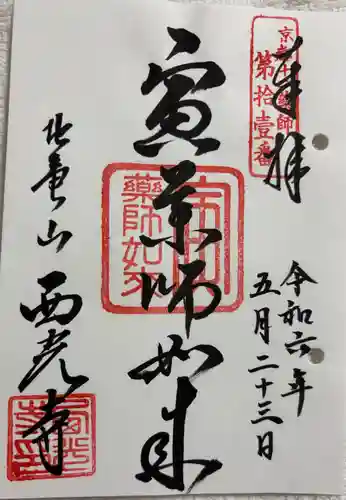 奉拝
京都十二薬師
第拾壹番
令和六年
五月二十三日
寅薬師如来
寅
薬師如来
北亀山
西光寺